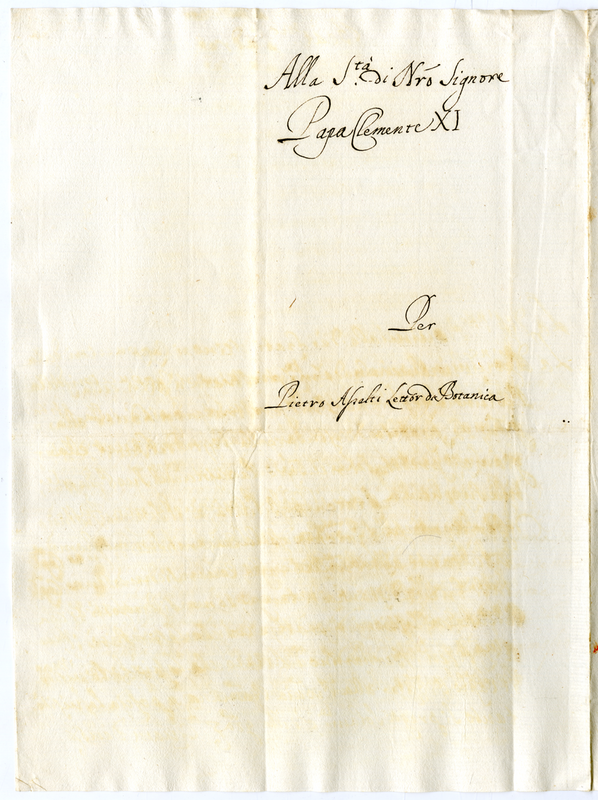 Alla S.tà di Nrõ Signore
Papa Clemente XI
Per
Pietro Assalti Lettor di Botanica